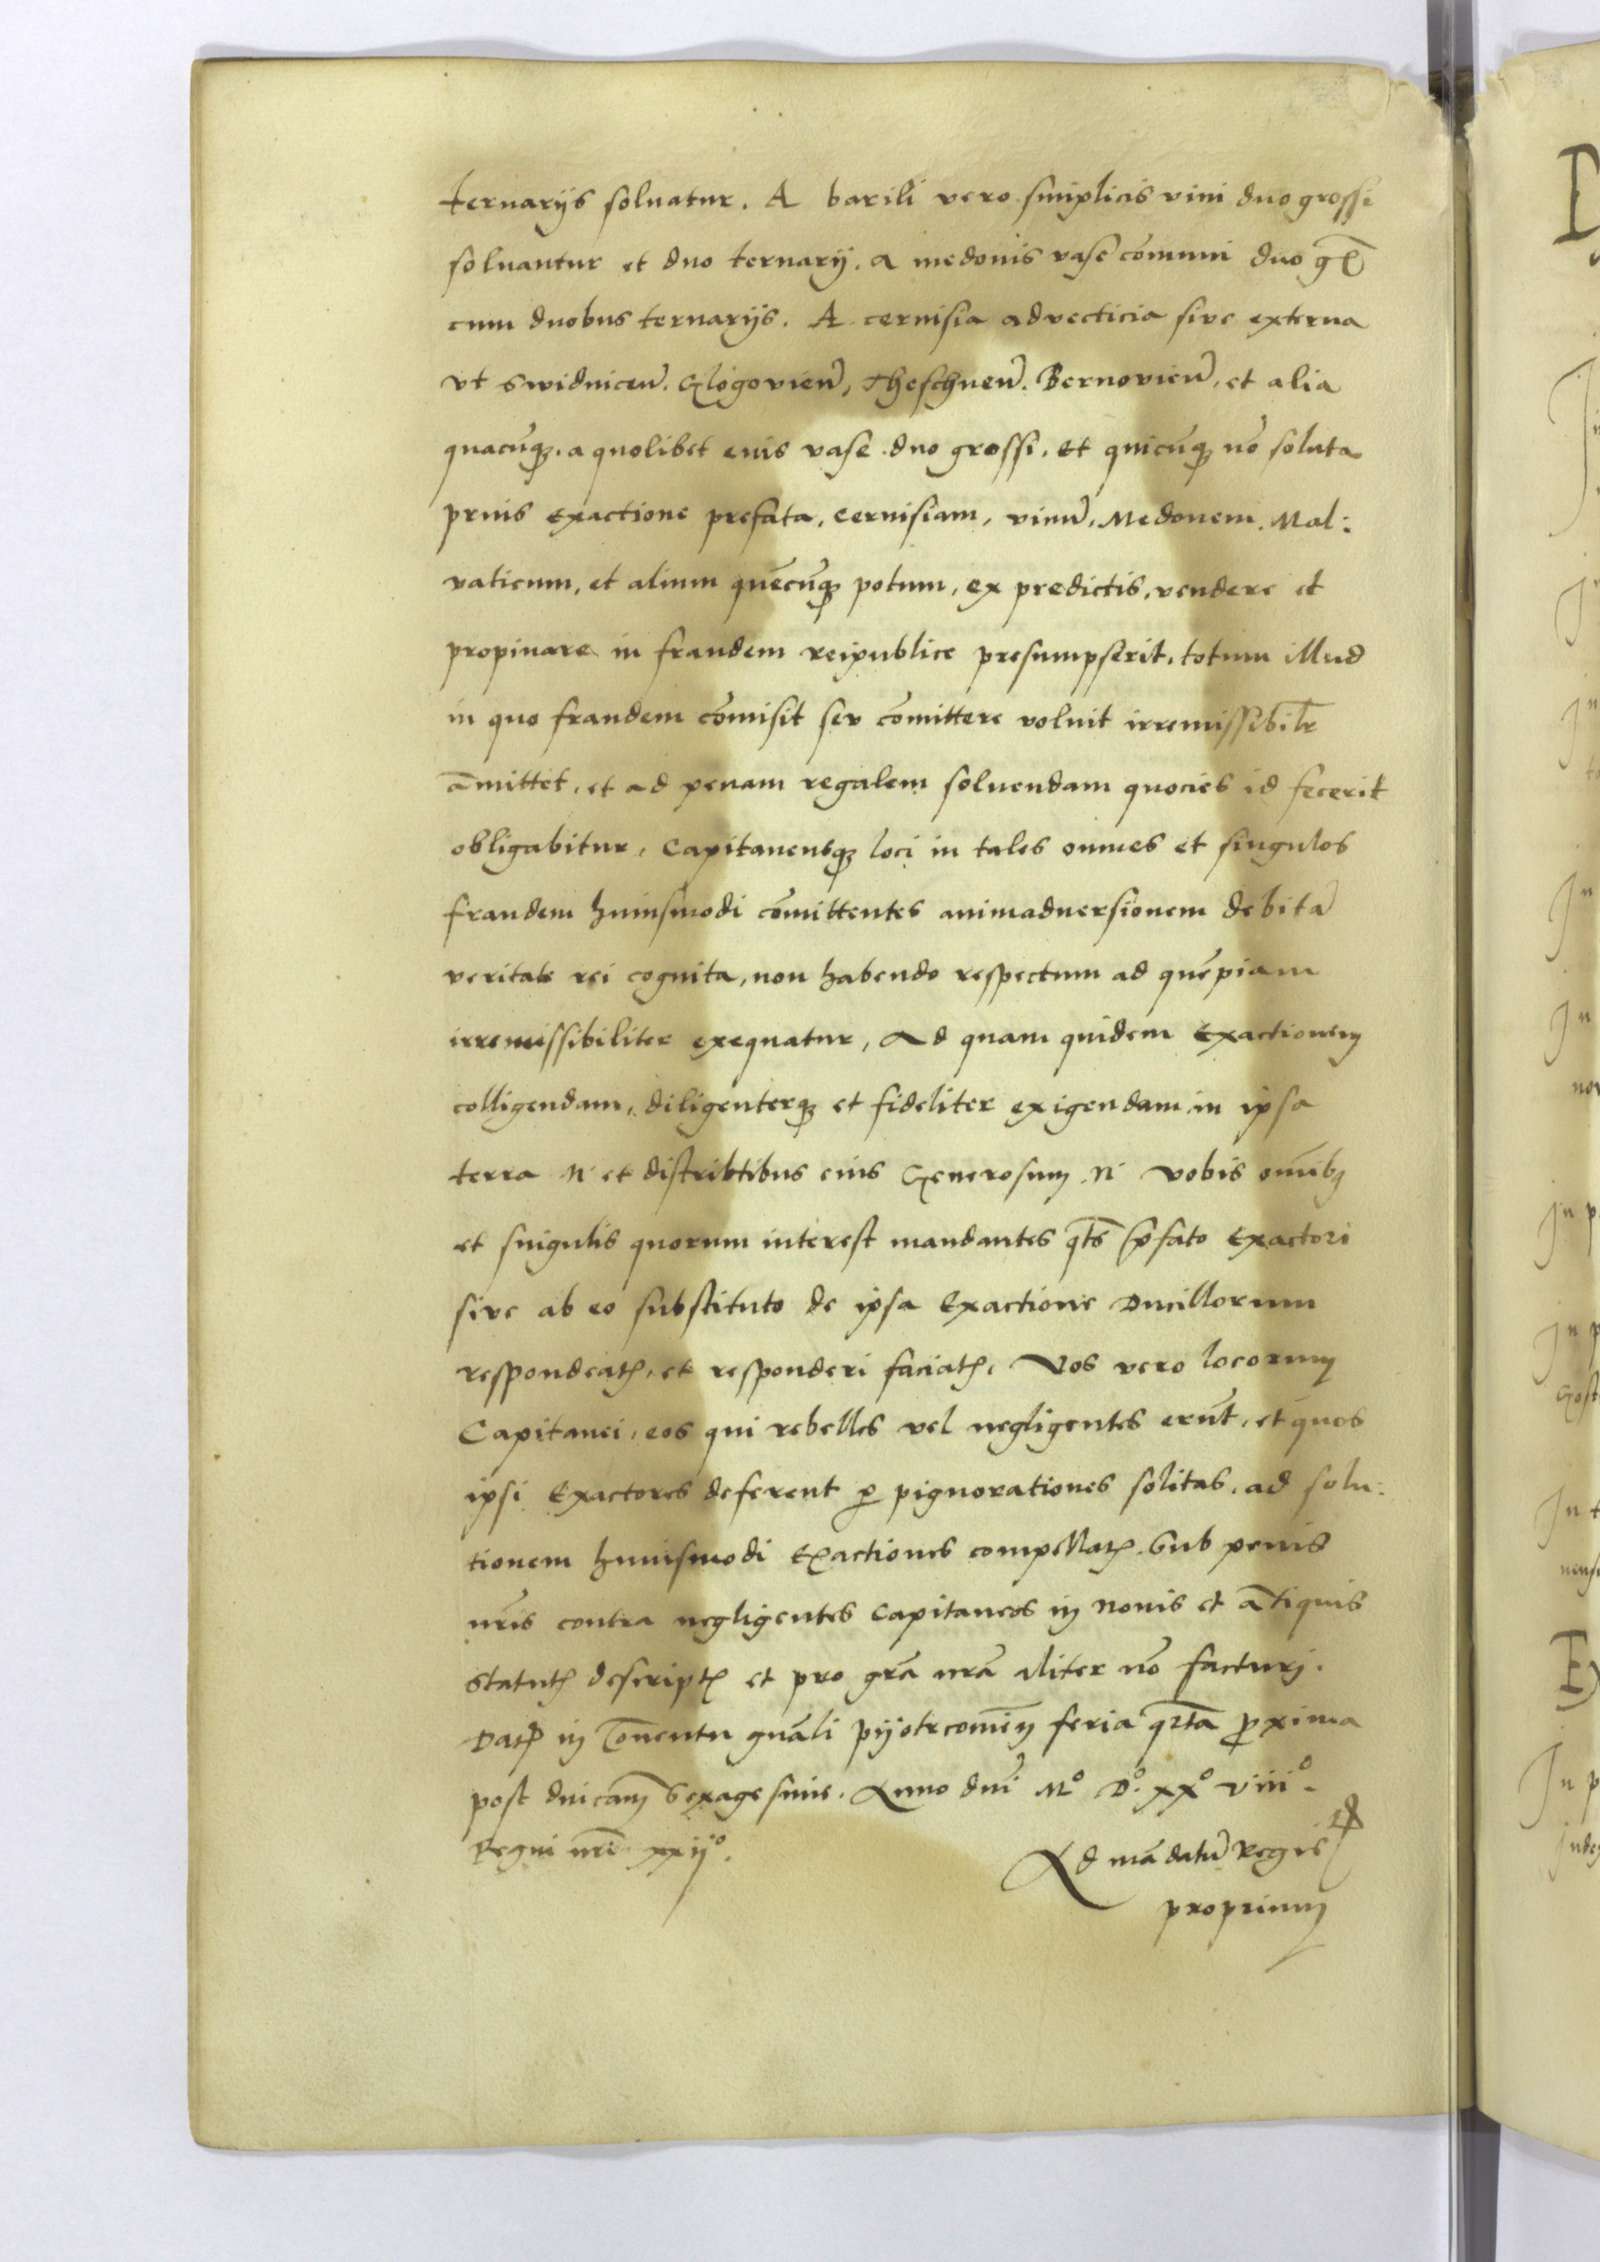 ternarijs soluatur. A barili vero simplicis vini duo grossi
soluantur et duo ternarij. a medonis vase com̄uni duo
cum duobus ternarijs. A ceruisia advecticia sive externa
vt Swidnicen̄. Glogovien̄, Theschnen̄. Bernovien̄, et alia
quacūq₃. a quolibet euis vase duo grossi. Et quicūq₃ nō soluta
prius Exactione prefata, ceruisiam, vinū, Medonem. Mal:
vaticum, et alium quēcūq₃ potum, ex predictis, vendere et
propinare in fraudem reipublice presumpserit, totum illud
in quo fraudem cōmisit seu cōmittere voluit irremissibilr̄
āmittet, et ad penam regalem soluendam quocies id fecerit
obligabitur, Capitaneusq₃ loci in tales omnes et singulos
fraudem huiusmodi cōmittentes animaduersionem debitā
veritate rei cognita, non habendo respectum ad quēpiam
irremissibiliter exequatur, Ad quam quidem Exactionem
colligendam, diligenterq₃ et fideliter exigendam in ipsa
terra N et districtibus eius Generosum N vobis om̄ib₃
et singulis quorum interest mandantes qt̄s p̄fato Exactori
sive ab eo substituto de ipsa Exactione Ducillorum
respondeatꝭ, et responderi faciatꝭ, Vos vero locorum
Capitanei, eos qui rebelles vel negligentes erūt, et quos
ipsi Exactores deferent ꝑ pignorationes solitas, ad solu:
tionem huiusmodi Exactiones compellatꝭ. Sub penis
nr̄is contra negligentes Capitaneos in nouis et ātiquis
Statutꝭ descriptꝭ et pro grā nrā aliter nō facturj.
Datꝭ in Cōuentu gnāli pijotrcomien̄ feria qrta ꝓxima
post dn̄icam̄ Sexagesime. Anno dn̄i Mº Dº. xxº viiiº.
Regni nrī xxijº.
Ad mādatū Regie
proprium